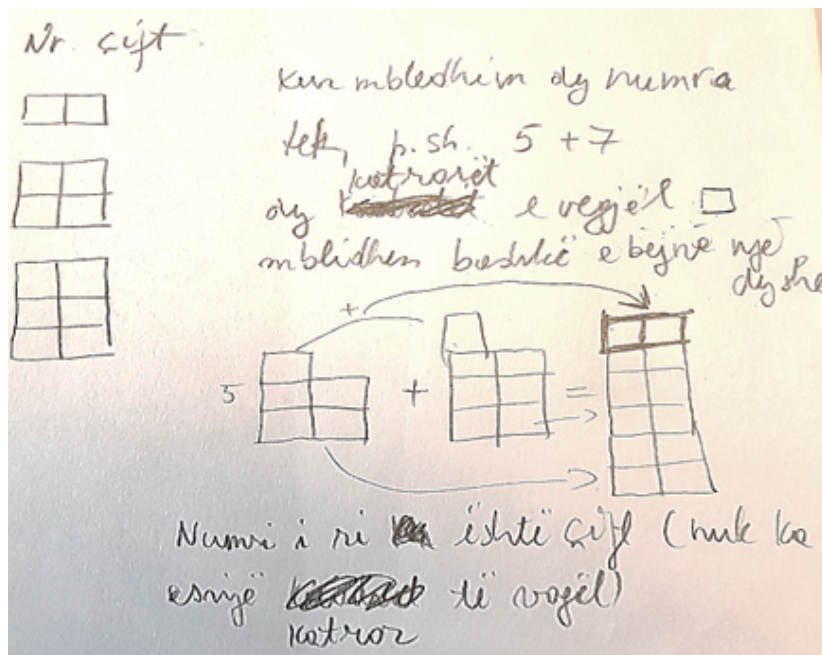 Nr. çift.
Kur mbledhim dy numra
tek, p.sh. 5 + 7
katrorët
dy e vegjël
mblidhen bashkë e bëjnë një
dyshe
+
5 + =
Numri i ri është çift (nuk ka
asnjë të vogël)
katror